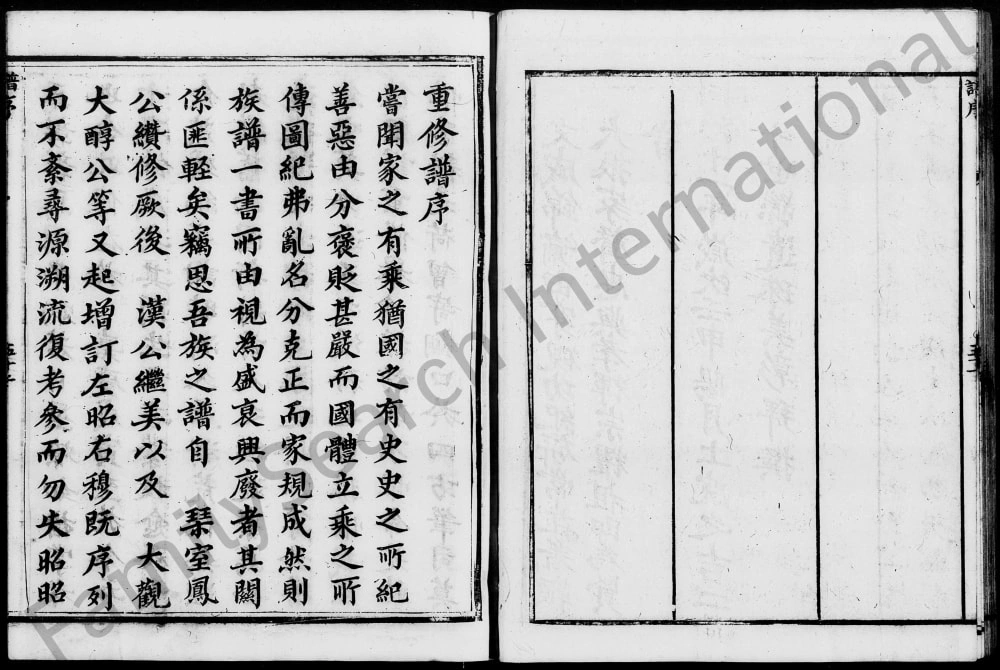 重修譜序
嘗聞家之有乘猶國之有史史之所紀
善惡由分褒貶甚嚴而國體立乘之所
傳圖紀弗亂名分克正而家規成然則
族譜一書所由視為盛衰興廢者其關
係匪輕矣竊思吾族之譜自 琹室鳳
公纘修厥後 漢公繼美以及 大觀
大醇公等又起增訂左昭右穆既序列
而不紊尋源溯流復考參而勿失昭昭
譜序
FamilySearch International